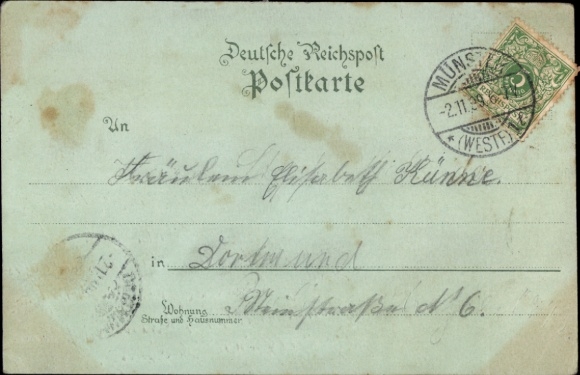 Deutsche Reichspost
Postkarte
MÜNSTER
-2.11.99
* (WESTF.) 1
An
Fräulein Elisabeth Künne.
in Dortmund
Wohnung
Straße und Hausnummer
Steinstraße No 6.